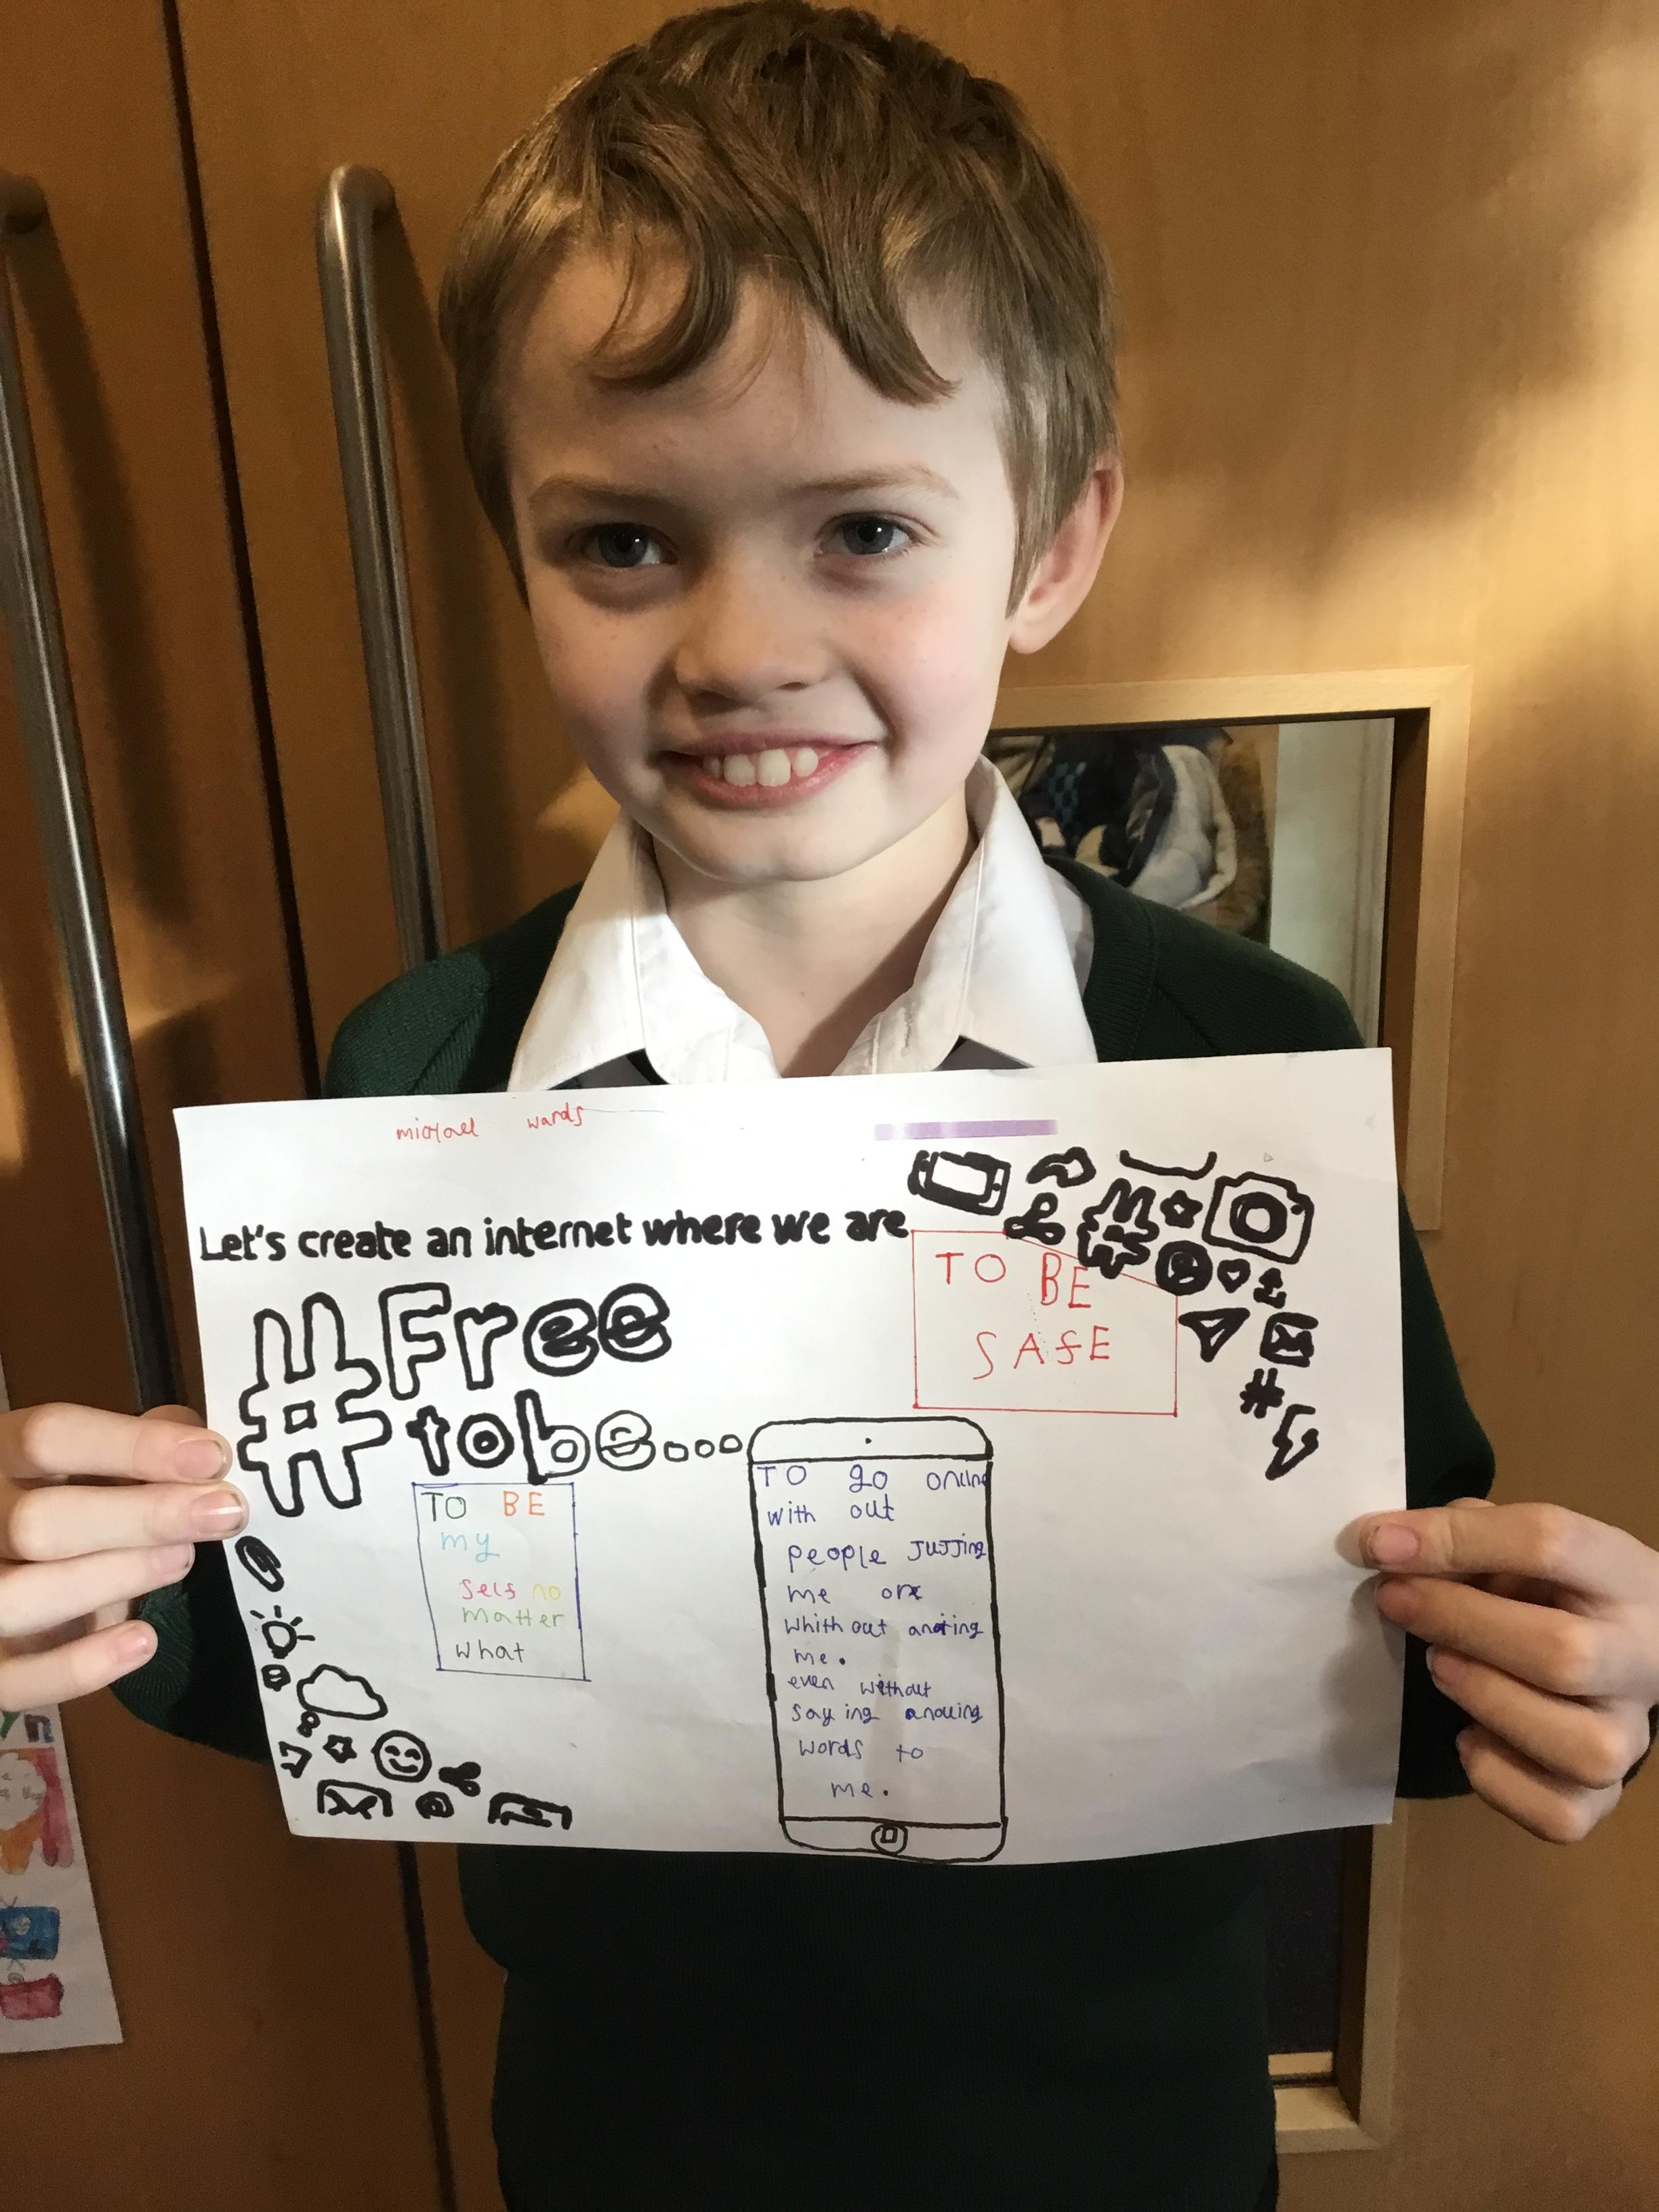 michael wards
Let's create an internet where we are
#Free
to be...
TO BE
SAfE
TO BE
my
self no
matter
what
TO go online
with out
people JuJJing
me or
Whith out
me.
even without
saying anouing
words to
me.
#
yn